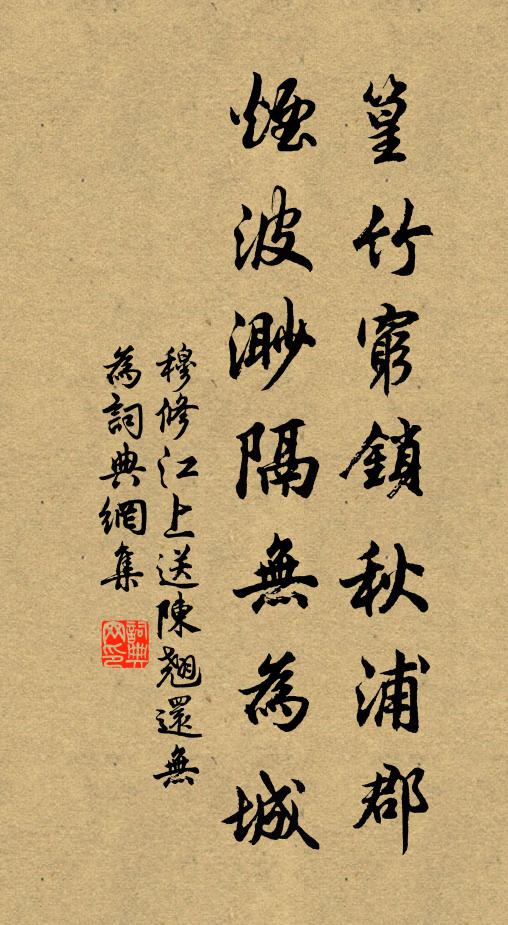 篁竹窮鎖秋浦郡
煙波渺隔無為城
穆修江上送陳翹還無
為詞典網集
詞典網印